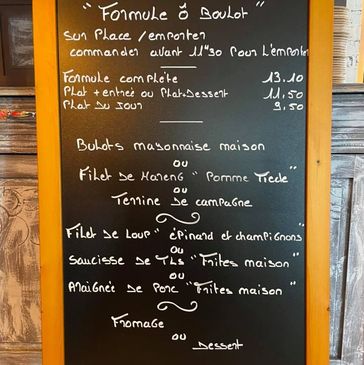 " Formule Ô Boulot "
Sur Place / emporter
commander avant 11"30 Pour L'emporter
Formule complète 13.10
Plat + entrée ou Plat + Dessert 11,50
Plat Du Jour 9,50
Bulots mayonnaise maison
ou
Filet de Hareng " Pomme Tiede "
ou
Terrine De campagne
Filet de Loup " épinard et champignons "
ou
Saucisse de TLS " Frites maison "
ou
Araignée de Porc " Frites maison "
Fromage
ou
Dessert